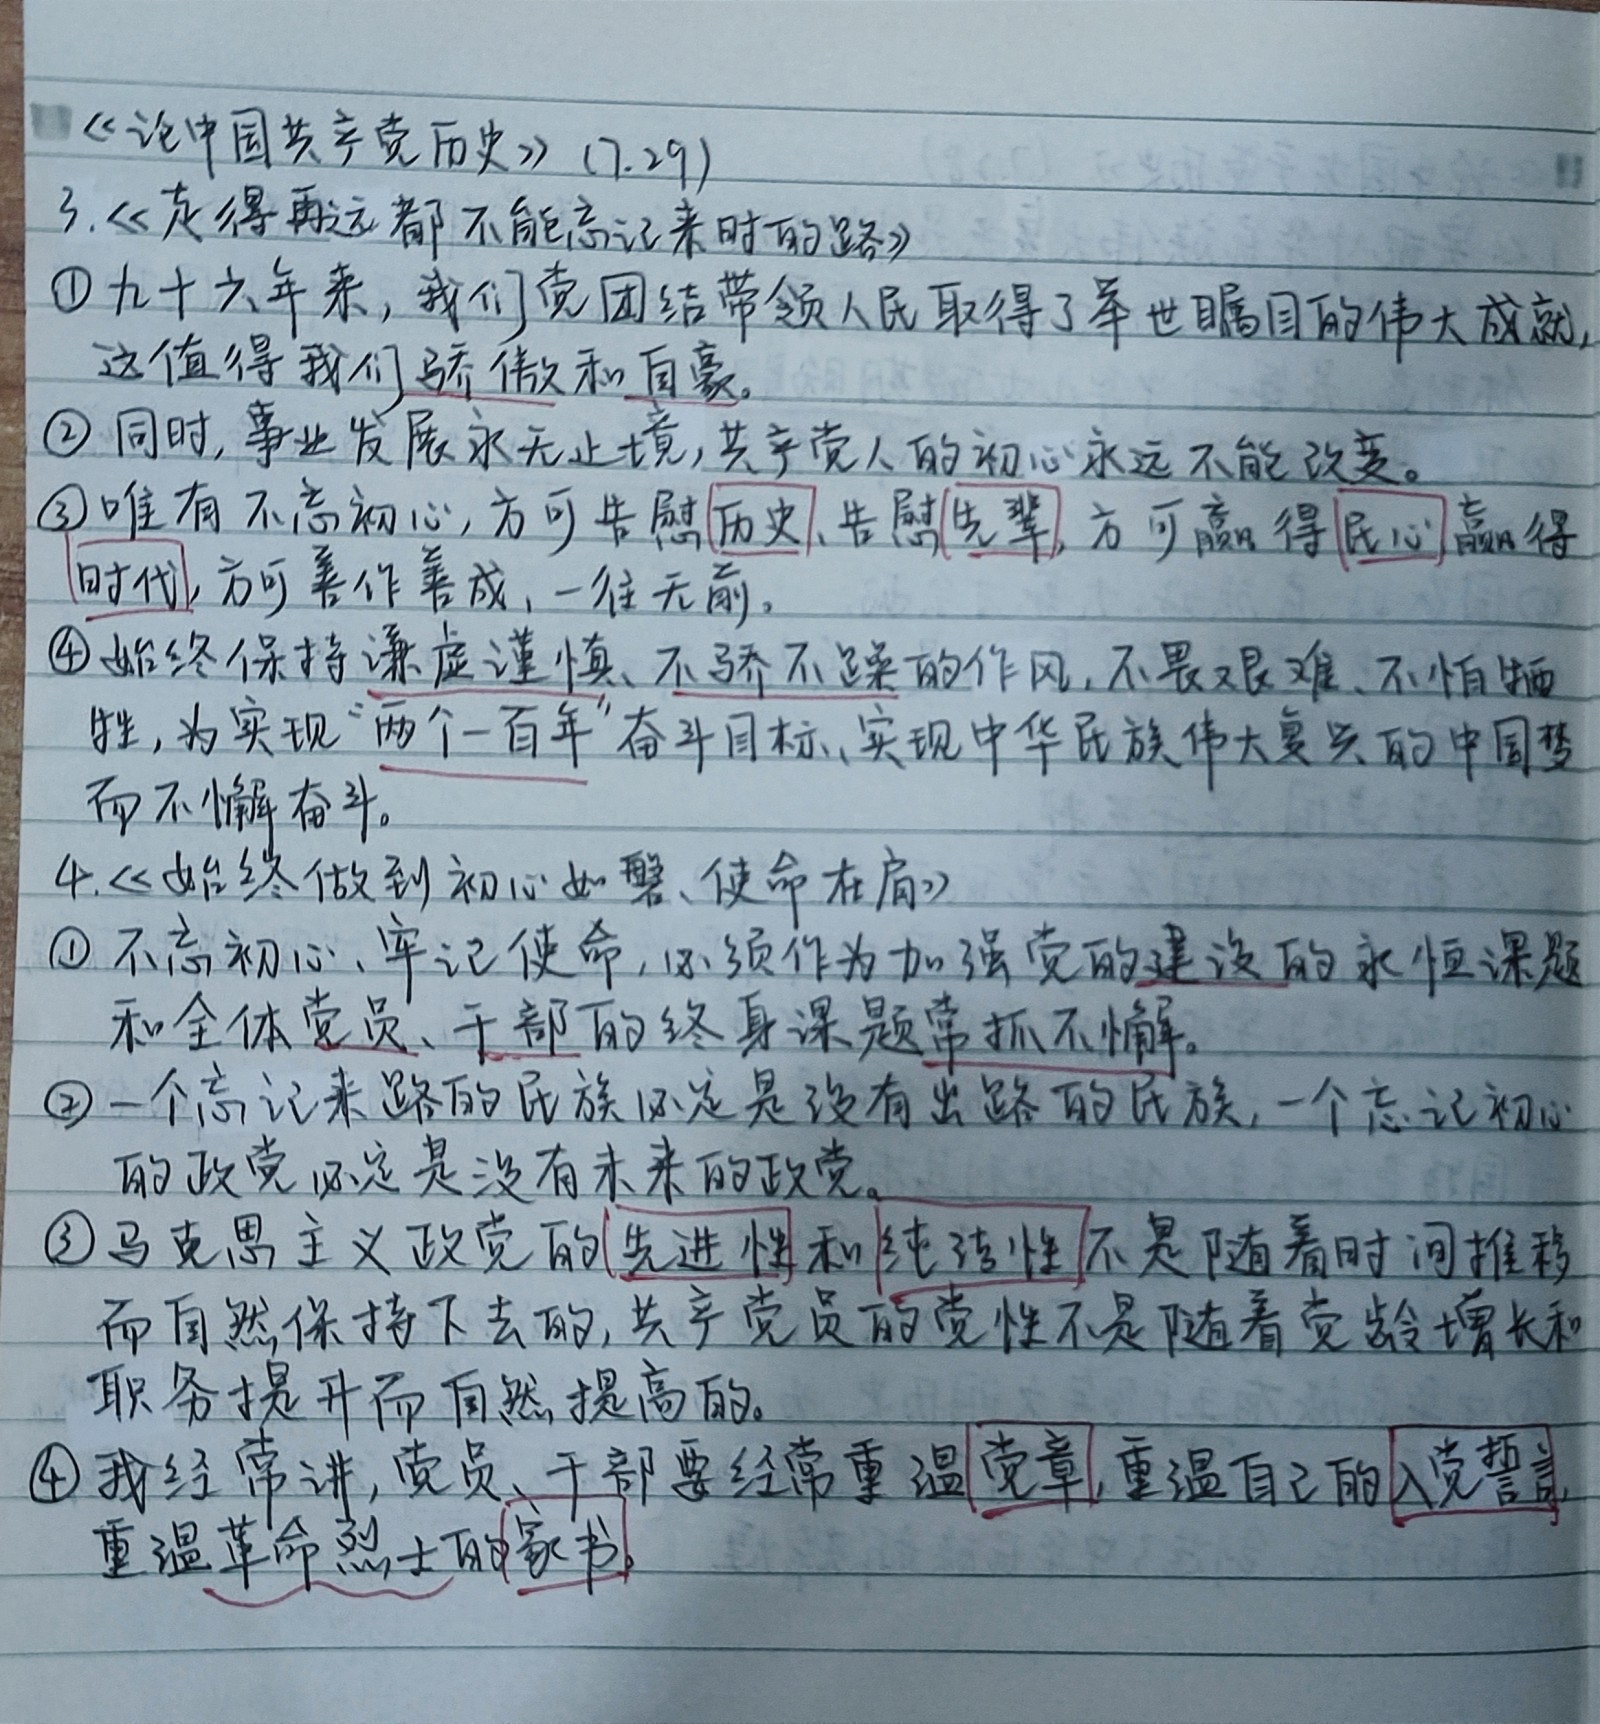 《论中国共产党历史》(7.29)
3.《走得再远都不能忘记来时的路》
①九十六年来,我们党团结带领人民取得了举世瞩目的伟大成就,
这值得我们骄傲和自豪。
②同时,事业发展永无止境,共产党人的初心永远不能改变。
③唯有不忘初心,方可告慰历史、告慰先辈,方可赢得民心赢得
时代,方可善作善成、一往无前。
④始终保持谦虚谨慎、不骄不躁的作风,不畏艰难、不怕牺
牲,为实现“两个一百年”奋斗目标、实现中华民族伟大复兴的中国梦
而不懈奋斗。
4.《始终做到初心如磐、使命在肩》
①不忘初心、牢记使命,必须作为加强党的建设的永恒课题
和全体党员、干部的终身课题常抓不懈。
②一个忘记来路的民族必定是没有出路的民族,一个忘记初心
的政党必定是没有未来的政党。
③马克思主义政党的先进性和纯洁性不是随着时间推移
而自然保持下去的,共产党员的党性不是随着党龄增长和
职务提升而自然提高的。
④我经常讲,党员、干部要经常重温党章,重温自己的入党誓言,
重温革命烈士的家书。